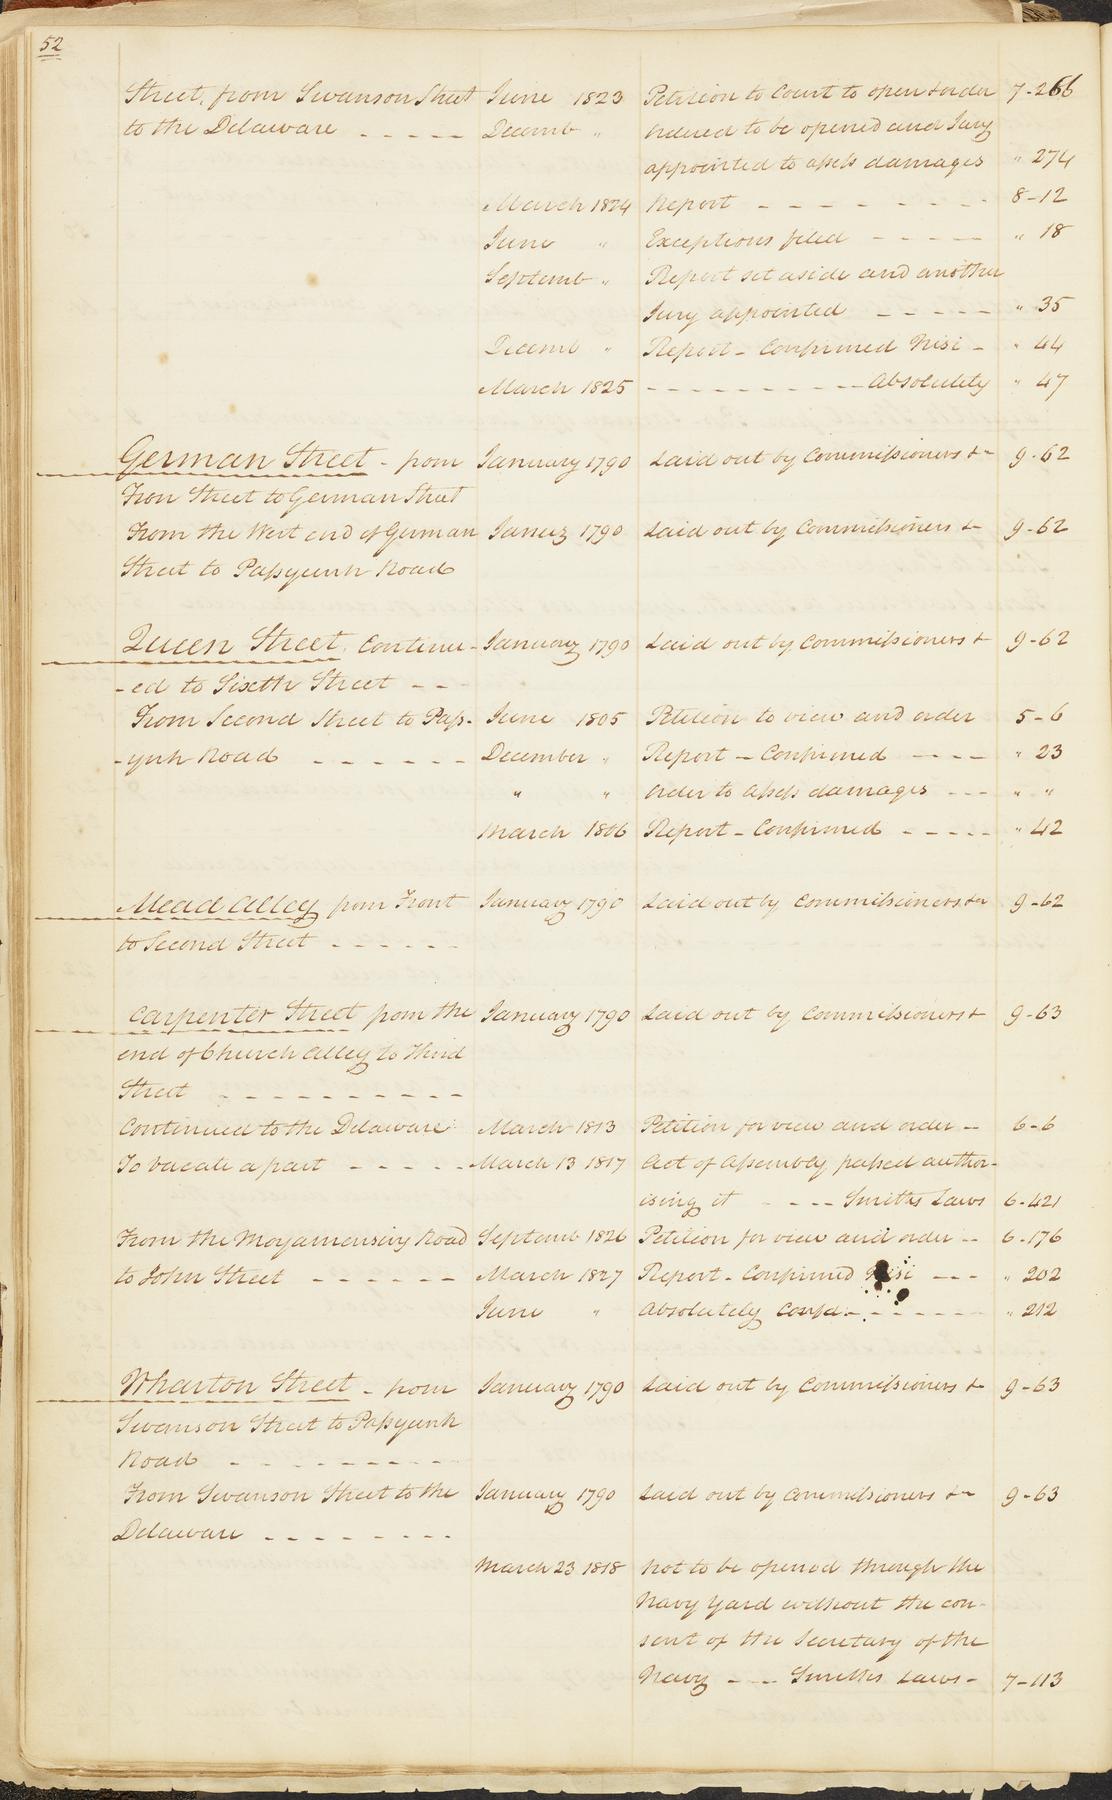 52
Street, from Swanson Street June 1823 Petition to Court to open & order 7-266
to the Delaware - - - - - Decemb " Ordered to be opened and Jury
appointed to assess damages " 274
March 1824 Report - - - - - - - - 8-12
June " Exceptions filed - - - - - " 18
Septemb " Report set aside and another
Jury appointed - - - - - " 35
Decemb " Report - Confirmed Nisi - " 44
March 1825 - - - - - - - - - - Absolutely " 47
German Street - from January 1790 Laid out by Commissioners &c 9-62
Fron Street to German Street
From the West end of German Januy 1790 Laid out by Commissioners &c 9-62
Street to Passyunk Road
Queen Street. Continu- January 1790 Laid out by Commissioners & 9-62
-ed to Sixth Street - - -
From Second Street to Pass- June 1805 Petition to view and order 5-6
-yunk Road - - - - - - December " Report - Confirmed - - - - " 23
" " Order to assess damages - - - " "
March 1806 Report - Confirmed - - - - - " 42
Mead Alley from Front January 1790 Laid out by Commissioners &c 9-62
to Second Street - - - - - -
Carpenter Street from the January 1790 Laid out by Commissioners & 9-63
end of Church Alley to Third
Street - - - - - - - - - -
Continued to the Delaware March 1813 Petition for view and order - - 6-6
To vacate a part - - - - - March 13 1817 Act of Assembly passed author-
ising it - - - - Smiths Laws 6-421
From the Moyamensing Road Septemb 1826 Petition for view and order - - 6-176
to John Street - - - - - - March 1827 Report - Confirmed Nisi - - - " 202
June " Absolutely Confd - - - - - - - " 212
Wharton Street - from January 1790 Laid out by Commissioners & 9-63
Swanson Street to Passyunk
Road - - - - - - - - - -
From Swanson Street to the January 1790 Laid out by Commissioners &c 9-63
Delaware - - - - - - - -
March 23 1818 Not to be opened through the
Navy Yard without the con-
sent of the Secretary of the
Navy - - - Smiths Laws - 7-113